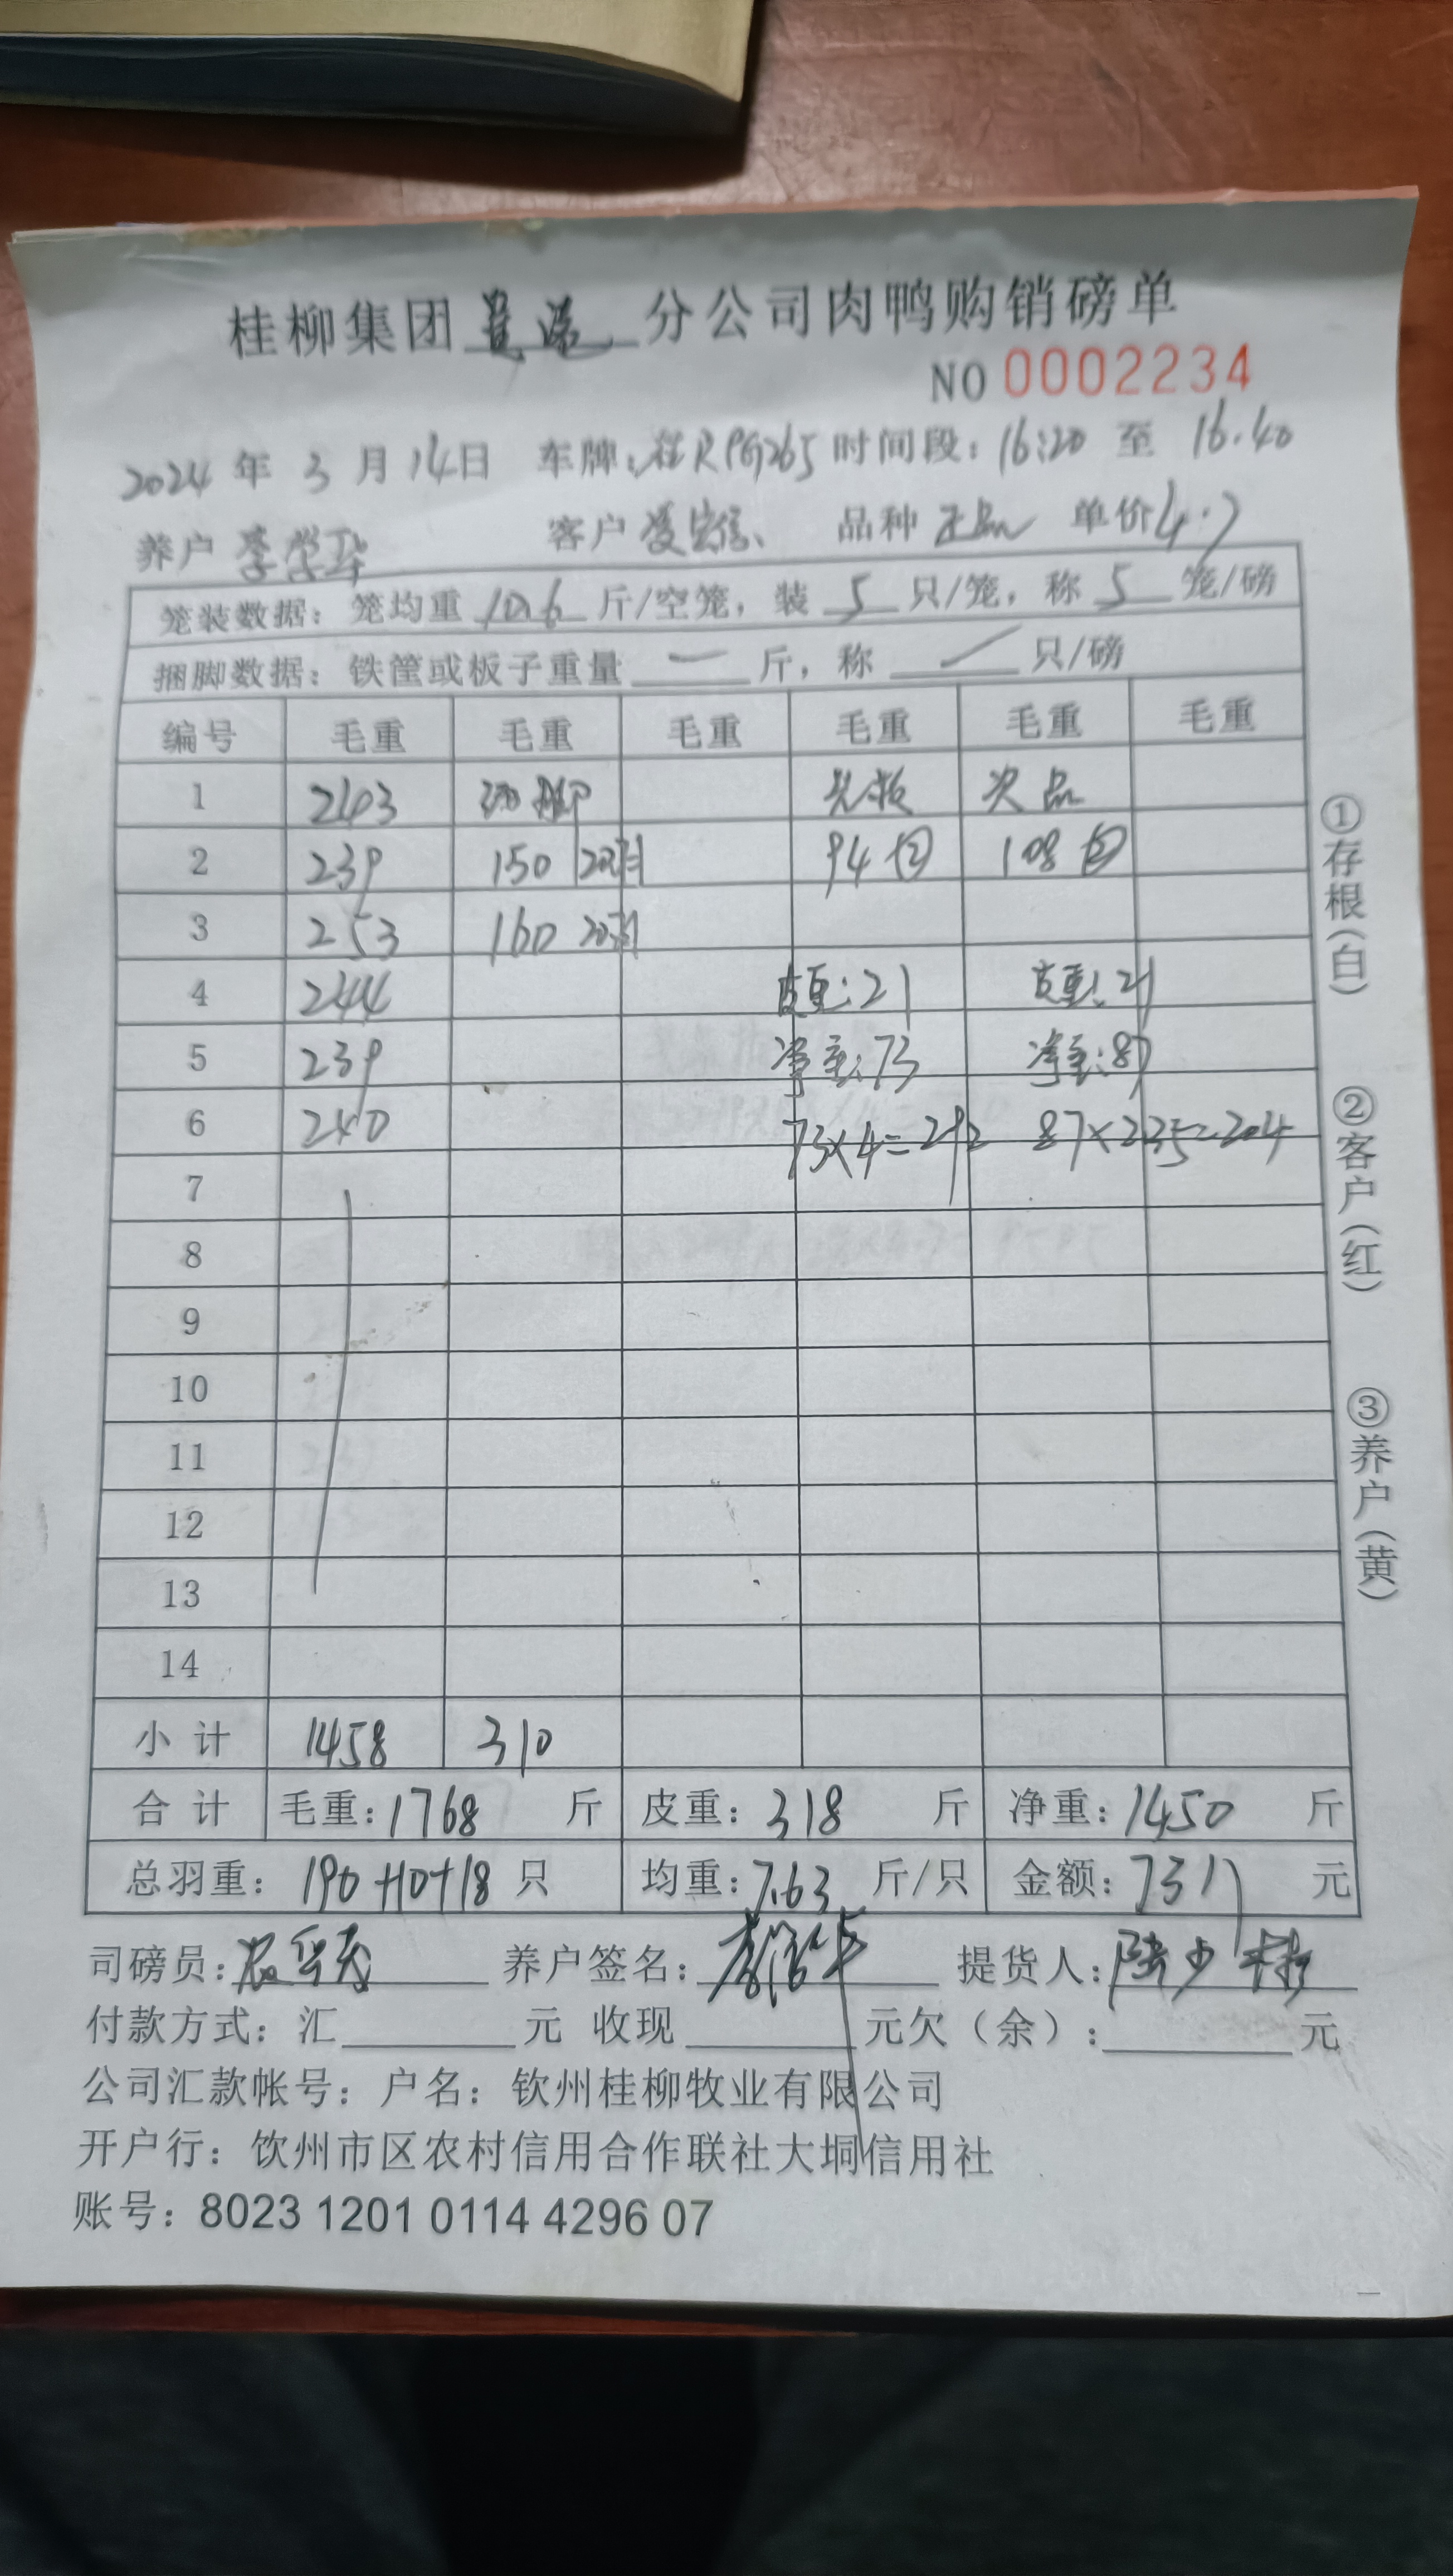 桂柳集团 分公司肉鸭购销磅单
NO 0002234
2024 年 3 月 14 日 车牌: 桂R 时间段: 16:20 至 16.40
养户 李学华 客户 品种 正品 单价 4.7
笼装数据: 笼均重 10.6 斤/空笼, 装 5 只/笼, 称 5 笼/磅
捆脚数据: 铁筐或板子重量 一 斤, 称 只/磅
编号 毛重 毛重 毛重 毛重 毛重 毛重
1 243 次品
2 239 150 94 108
3 253 160
4 244 皮重: 21 皮重: 21
5 239 净重: 73 净重: 87
6 240 73×4=292 87×2.35=204
7
8
9
10
11
12
13
14
小计 1458 310
合计 毛重: 1768 斤 皮重: 318 斤 净重: 1450 斤
总羽重: 190+10+18 只 均重: 7.63 斤/只 金额: 7317 元
司磅员: 养户签名: 李学华 提货人:
付款方式: 汇 元 收现 元欠（余）: 元
公司汇款帐号: 户名: 钦州桂柳牧业有限公司
开户行: 钦州市区农村信用合作联社大垌信用社
账号: 8023 1201 0114 4296 07
①存根（白）
②客户（红）
③养户（黄）